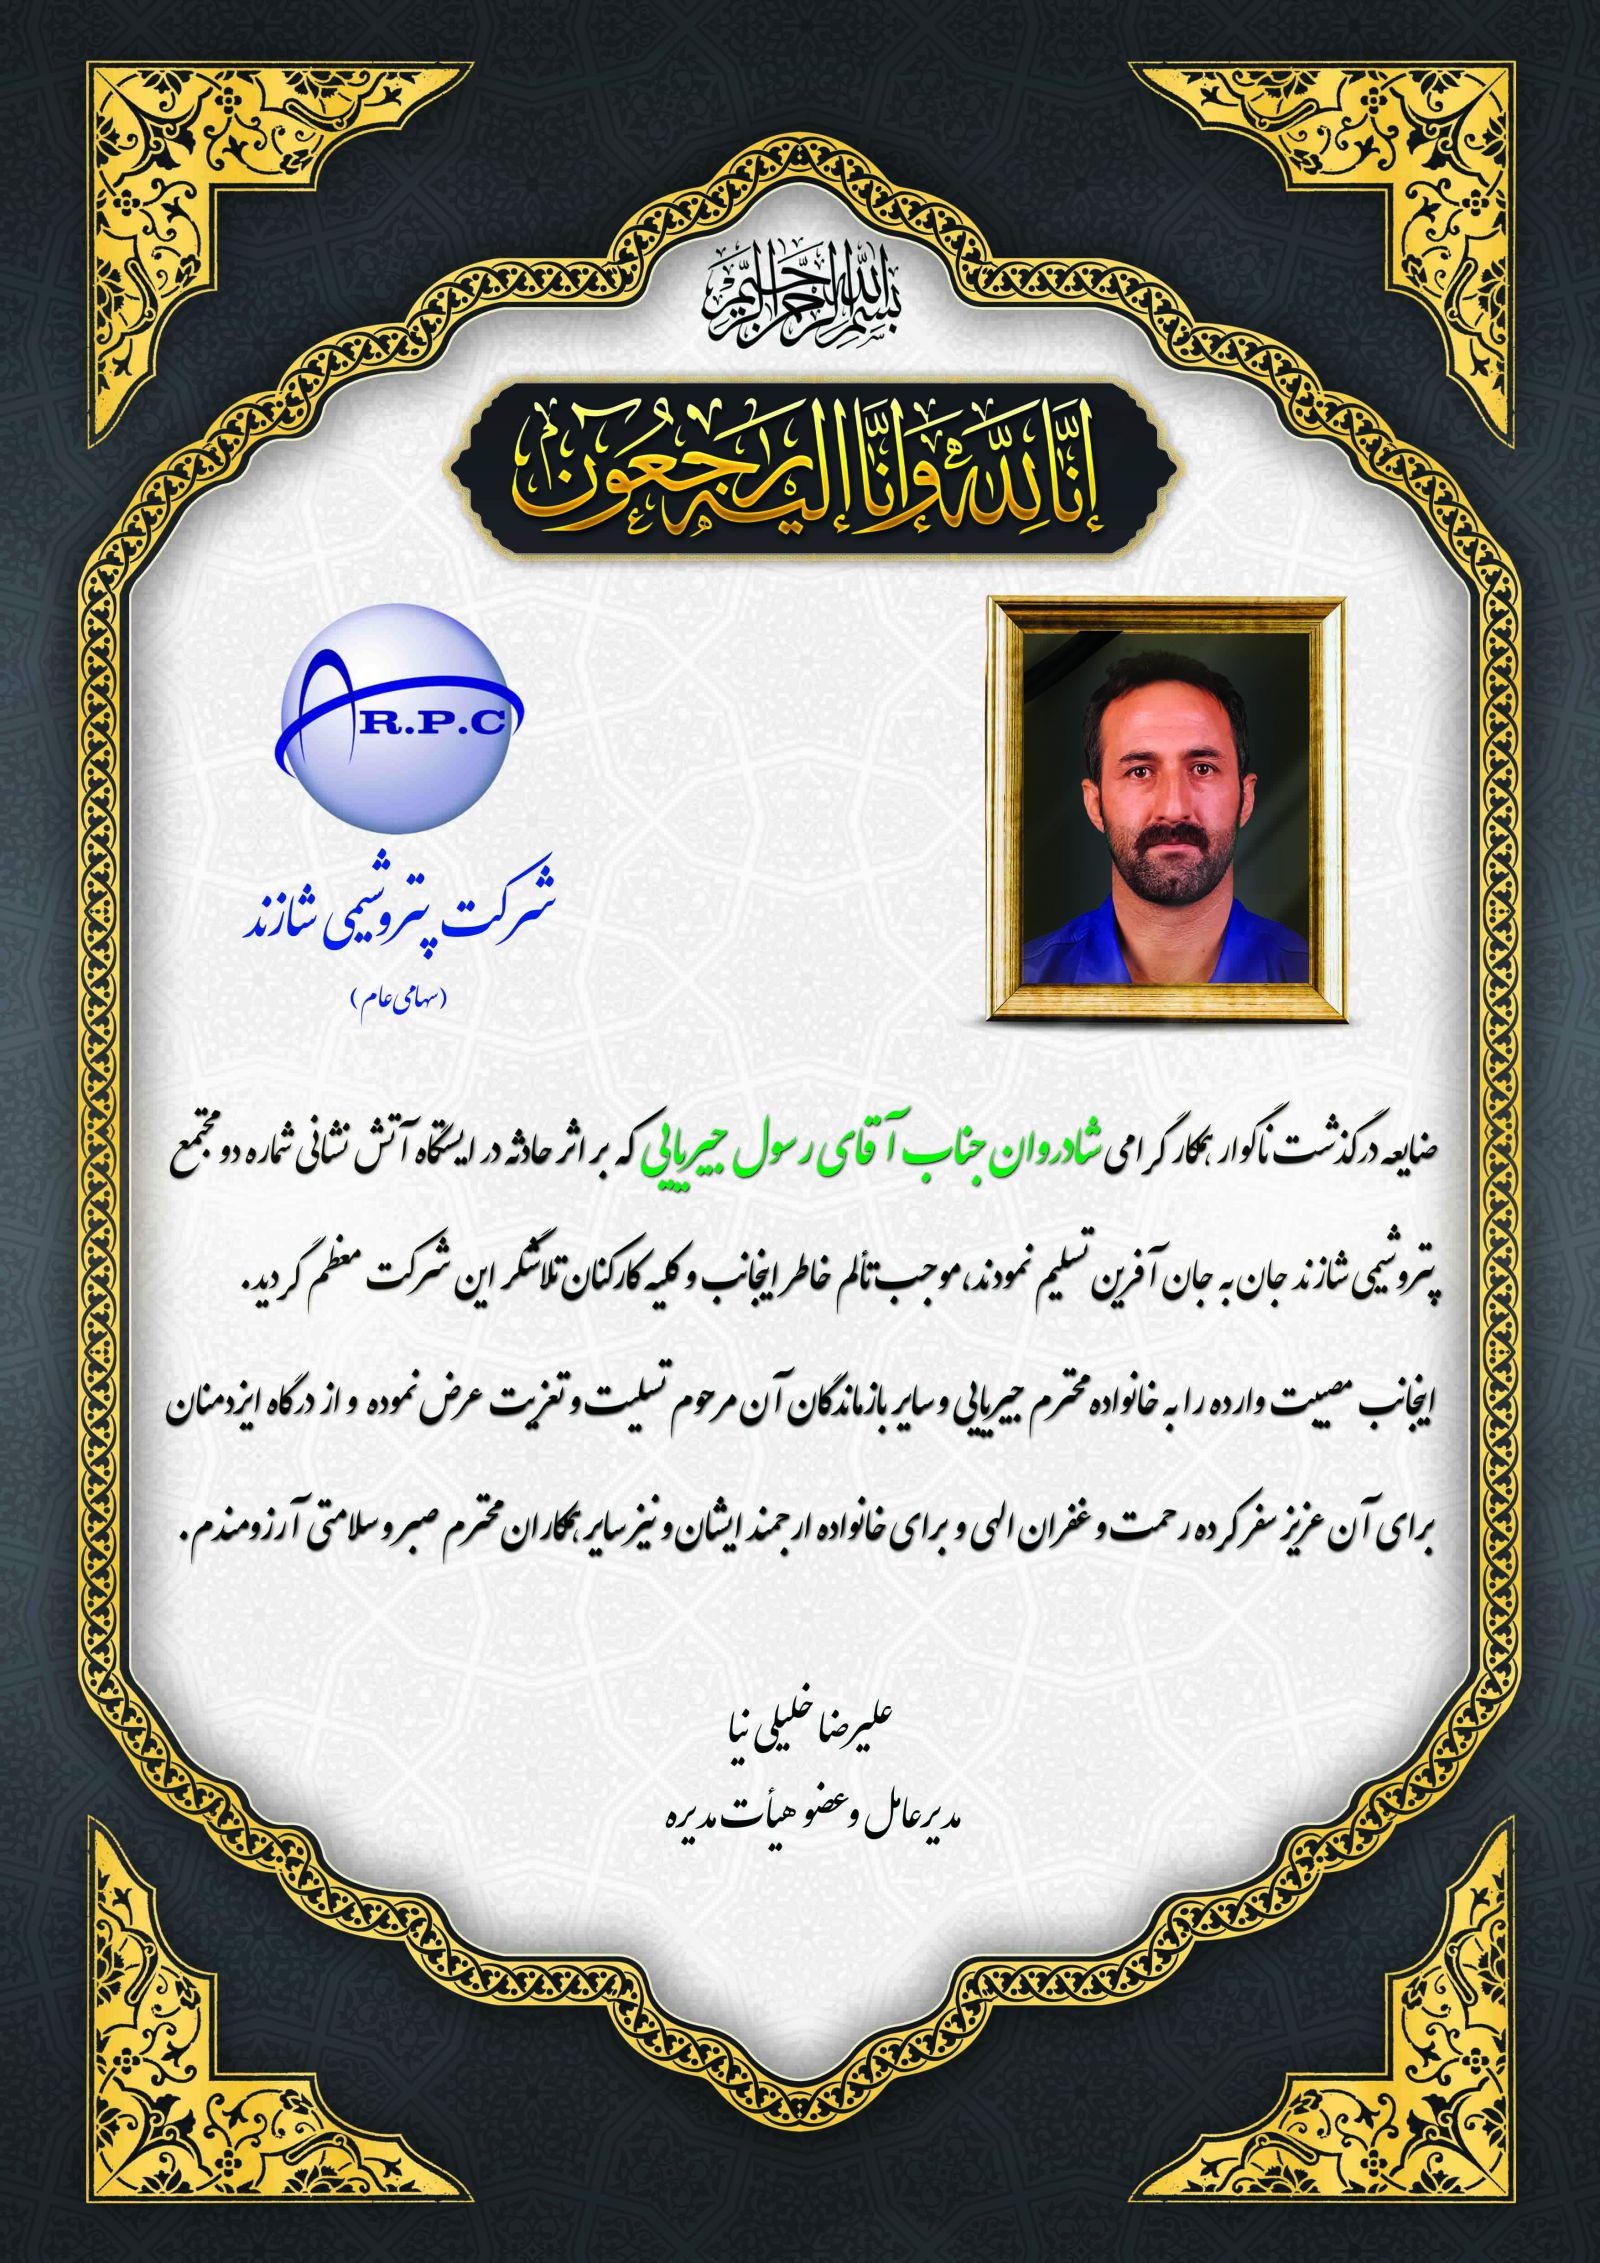 بسم الله الرحمن الرحیم
إنا لله وإنا إلیه راجعون
A R.P.C
شرکت پتروشیمی شازند
(سهامی عام)
ضایعه درگذشت ناگوار همکار گرامی شادروان جناب آقای رسول جیریایی که بر اثر حادثه در ایستگاه آتش نشانی شماره دو مجتمع
پتروشیمی شازند جان به جان آفرین تسلیم نمودند، موجب تألم خاطر اینجانب و کلیه کارکنان تلاشگر این شرکت معظم گردید.
اینجانب مصیبت وارده را به خانواده محترم جیریایی و سایر بازماندگان آن مرحوم تسلیت و تعزیت عرض نموده و از درگاه ایزدمنان
برای آن عزیز سفر کرده رحمت و غفران الهی و برای خانواده ارجمند ایشان و نیز سایر همکاران محترم صبر و سلامتی آرزومندم.
علیرضا خلیلی نیا
مدیرعامل و عضو هیأت مدیره